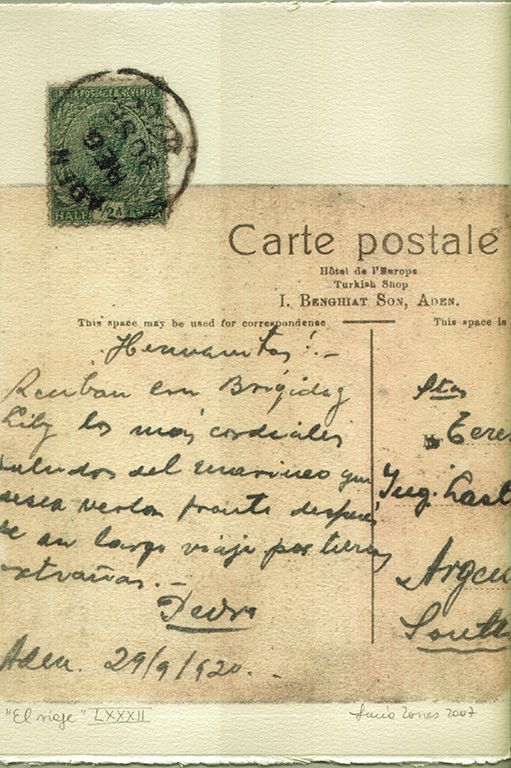 INDIA POSTAGE & REVENUE
ADEN
HALF ANNA
Carte postale
Hôtel de l'Europe
Turkish Shop
I. BENGHIAT SON, ADEN.
This space may be used for correspondence
This space is
¡Hermanitas!.-
Reciban con Brígida y
Lily los más cordiales
saludos del marinero que
desea verlas pronto después
de un largo viaje por tierras
extrañas.-
Pedro
Aden. 29/9/920.-
Stas
Teres
Ing. Last
Argen
South
"El viaje" LXXXII
2007